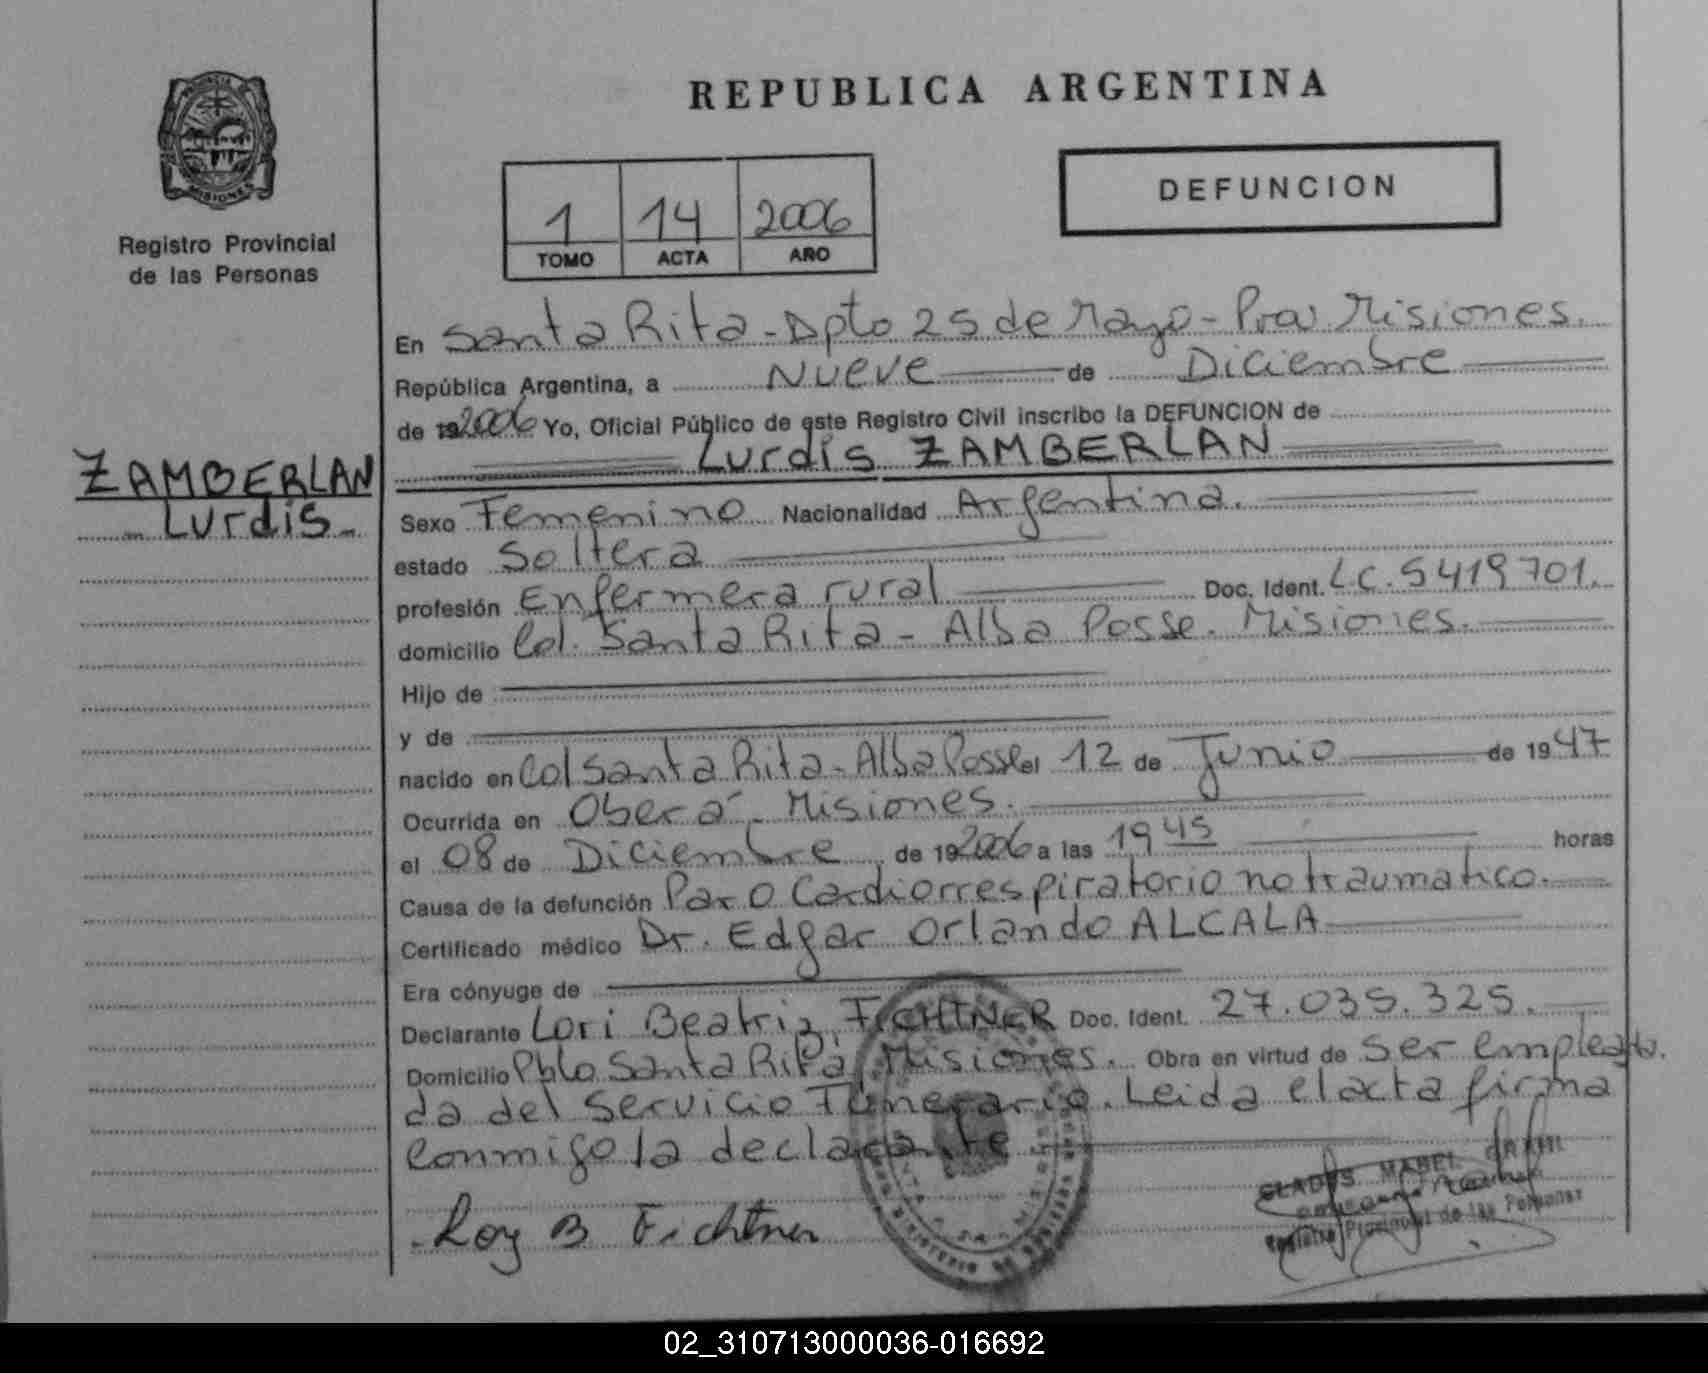 REPUBLICA ARGENTINA
DEFUNCION
PROVINCIA DE
MISIONES
Registro Provincial
de las Personas
1 14 2006
TOMO ACTA AÑO
En Santa Rita - Dpto 25 de Mayo - Pcia Misiones.
República Argentina, a Nueve de Diciembre
de 19 2006 Yo, Oficial Público de este Registro Civil inscribo la DEFUNCION de
Lurdis ZAMBERLAN
ZAMBERLAN
Lurdis
Sexo Femenino Nacionalidad Argentina.
estado Soltera
profesión Enfermera rural Doc. Ident. L.C. 5419701.
domicilio Col. Santa Rita - Alba Posse. Misiones.
Hijo de
y de
nacido en Col Santa Rita - Alba Posse el 12 de Junio de 1947
Ocurrida en Oberá - Misiones.
el 08 de Diciembre de 19 2006 a las 19 45 horas
Causa de la defunción Paro Cardiorrespiratorio no traumatico.
Certificado médico Dr. Edgar Orlando ALCALA
Era cónyuge de
Declarante Lori Beatriz FICHTNER Doc. Ident. 27.035.325.
Domicilio Pblo Santa Rita, Misiones. Obra en virtud de ser emplea
da del servicio Funerario. Leida el acta firma
conmigo la declarante
Lory B Fichtner
GLADYS MABEL
Registro Provincial de las Personas
02_310713000036-016692